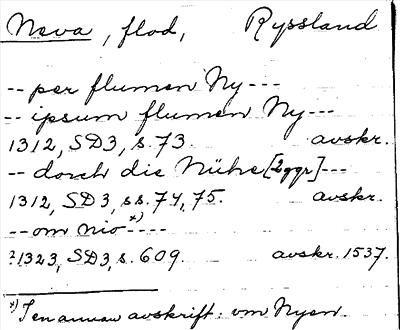 Neva, flod, Ryssland
-- per flumen Ny ---
-- ipsum flumen Ny ---
1312, SD3, s. 73. avskr.
-- dorch die Nühe [2 ggr] ---
1312, SD3, ss. 74, 75. avskr.
-- om nio *) ----
?1323, SD3, s. 609. avskr. 1537.
*) I en annan avskrift: om Nyen.